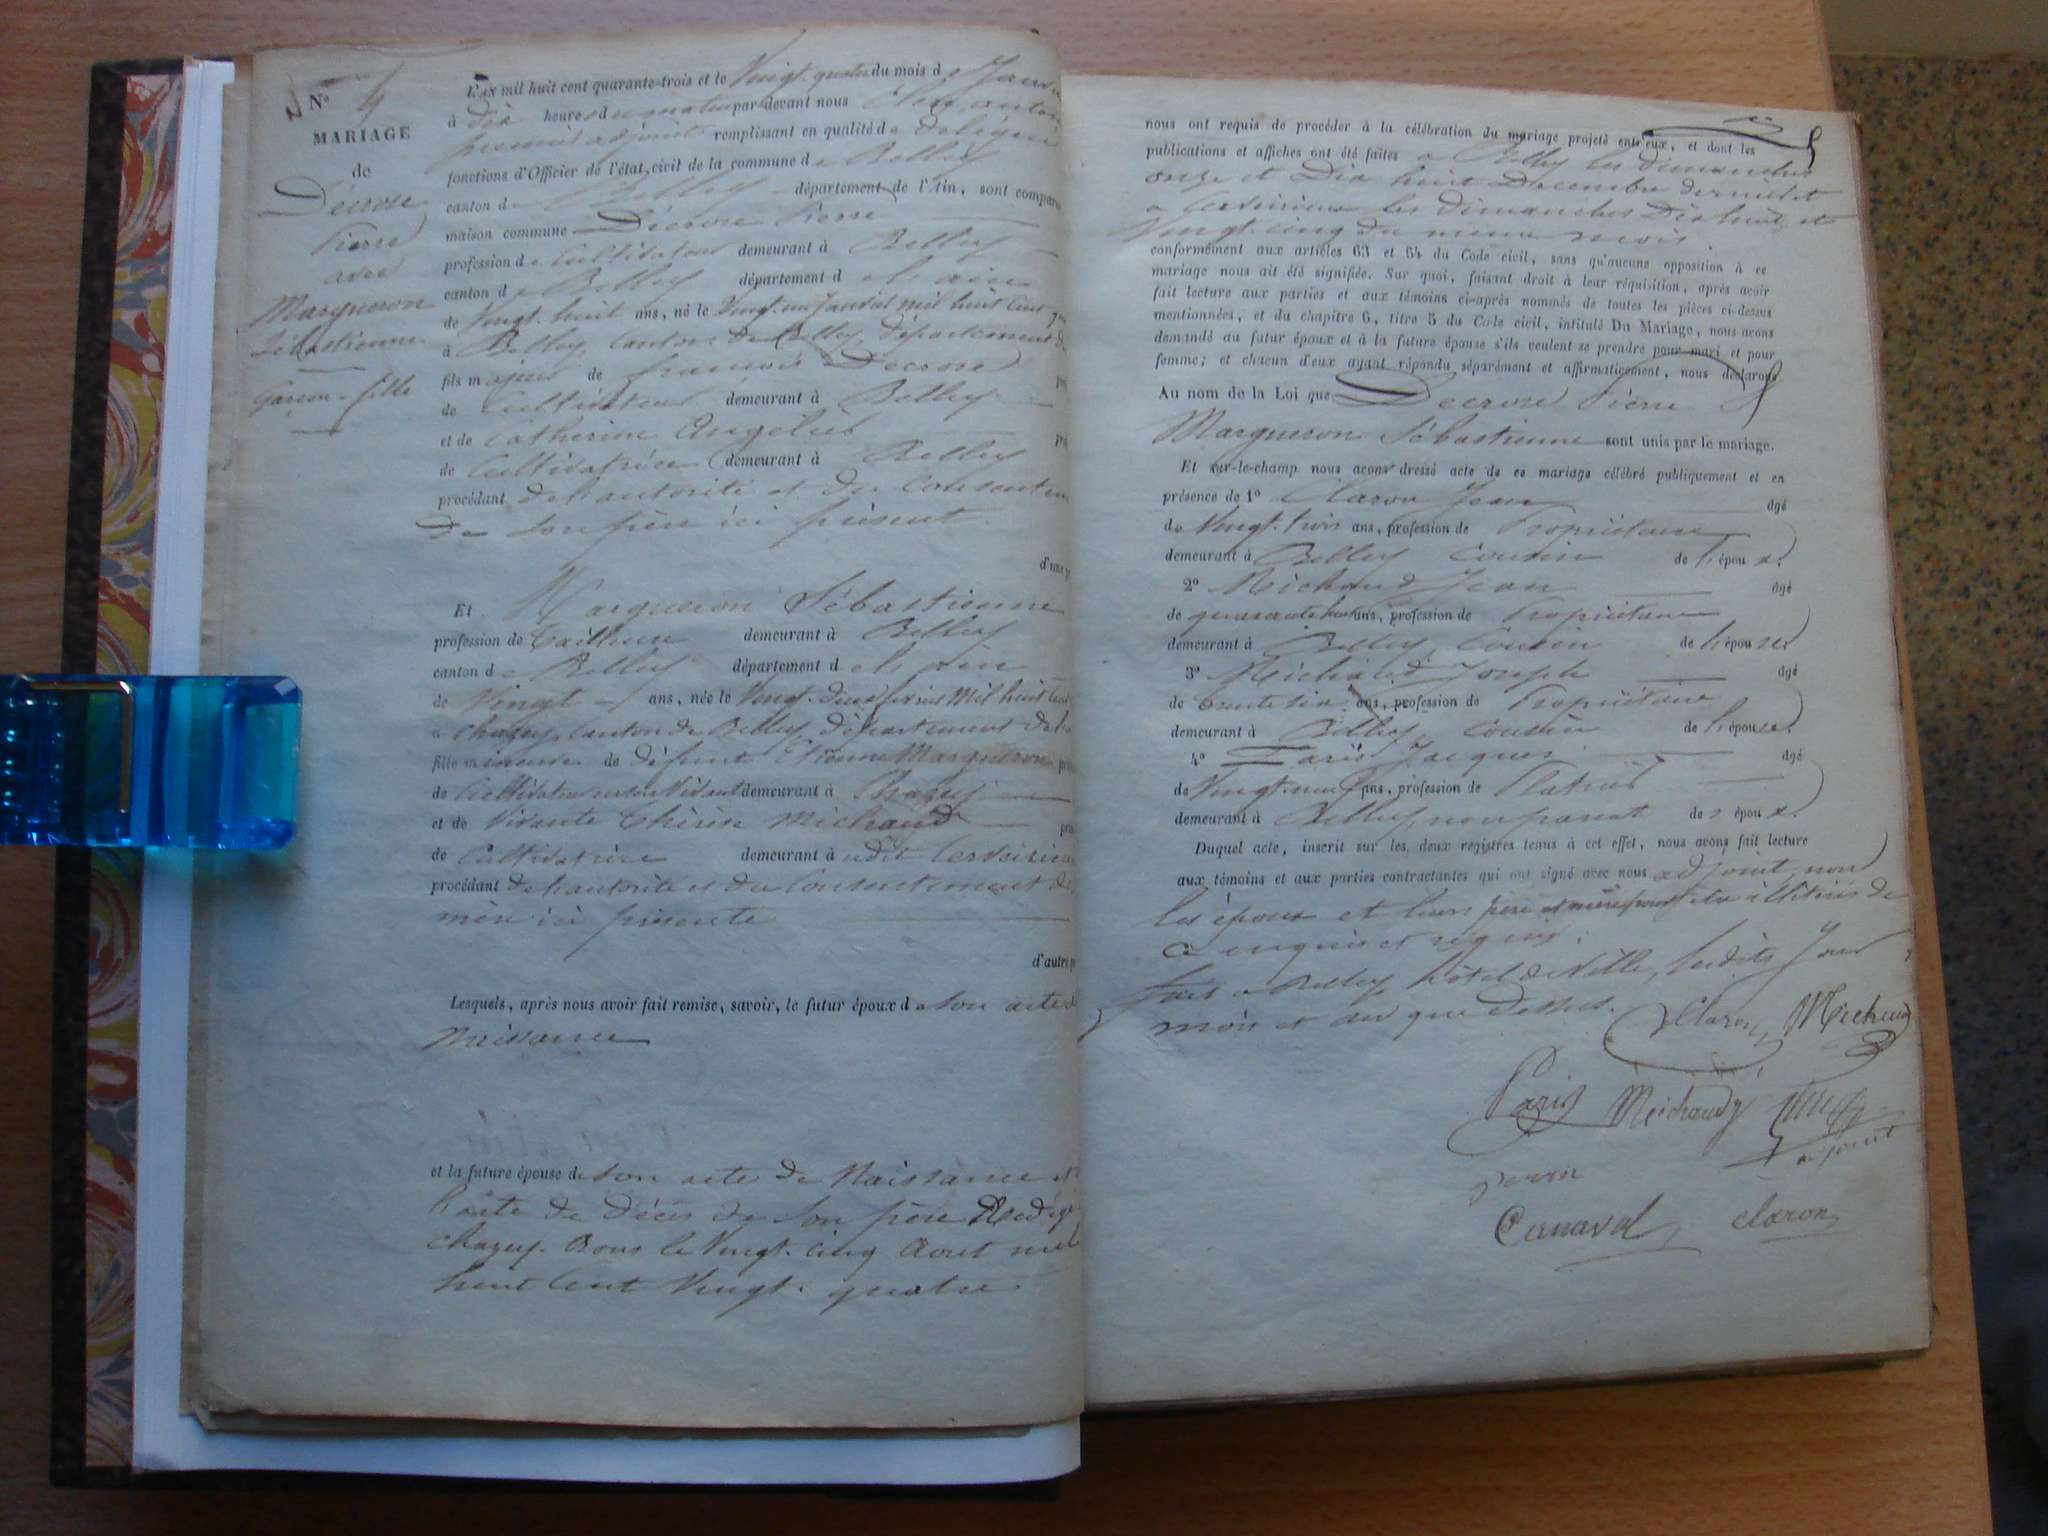 N° 4
MARIAGE
de
Décrose
Pierre
avec
Margueron
Sébastienne
Garçon - fille
L'AN mil huit cent quarante-trois et le Vingt-quatre du mois de Janvier
à dix heures du matin par-devant nous
premier adjoint remplissant en qualité de délégué
fonctions d'Officier de l'état civil de la commune de Belley
canton de Belley département de l'Ain, sont comparus
maison commune Décrose Pierre
profession de Cultivateur demeurant à Belley
canton de Belley département de l'ain
de Vingt-huit ans, né le Vingt-un Janvier mil huit cent
à Belley, canton de Belley, département de
fils majeur de francois Decrose
de Cultivateur demeurant à Belley
et de Catherine
de Cultivatrice demeurant à Belley
procédant de l'autorité et du Consentem
de son père ici présent
d'une p
Et Margueron Sébastienne
profession de Tailleuse demeurant à Belley
canton de Belley département de l'ain
de Vingt ans, née le Vingt-deux mil huit cent
à Chazey, canton de Belley, département de l'a
fille mineure de défunt Etienne Margueron
de Cultivateur de son Vivant demeurant à Chazey
et de Vivante Thérèse Michaud
de Cultivatrice demeurant à
procédant de l'autorité et du Consentement de
mère ici présente
d'autre p
Lesquels, après nous avoir fait remise, savoir, le futur époux de son acte de
Naissance
et la future épouse de son acte de Naissance et
l'acte de Décès de son père Rédigé
chazey-Bons le Vingt-cinq Aout mil
huit Cent Vingt-quatre
nous ont requis de procéder à la célébration du mariage projeté entr'eux, et dont les
publications et affiches ont été faites a Belley les dimanches
onze et Dix huit Decembre dernier et
a les dimanches Dix huit et
Vingt-cinq du même mois
conformément aux articles 63 et 64 du Code civil, sans qu'aucune opposition à ce
mariage nous ait été signifiée. Sur quoi, faisant droit à leur réquisition, après avoir
fait lecture aux parties et aux témoins ci-après nommés de toutes les pièces ci-dessus
mentionnées, et du chapitre 6, titre 5 du Code civil, intitulé Du Mariage, nous avons
demandé au futur époux et à la future épouse s'ils veulent se prendre pour mari et pour
femme; et chacun d'eux ayant répondu séparément et affirmativement, nous déclarons
Au nom de la Loi que Decrose Pierre &
Margueron Sébastienne sont unis par le mariage.
Et sur-le-champ nous avons dressé acte de ce mariage célébré publiquement et en
présence de 1° Claron Jean âgé
de Vingt-trois ans, profession de Propriétaire
demeurant à Belley Cousin de l'époux.
2° Michaud Jean âgé
de quarante huit ans, profession de Propriétaire
demeurant à Belley, Cousin de l'épouse
3° Michaud Joseph âgé
de trente six ans, profession de Propriétaire
demeurant à Belley, Cousin de l'épouse.
4° Paris Jacques âgé
de Vingt-neuf ans, profession de Platrier
demeurant à Belley, non parent des époux.
Duquel acte, inscrit sur les deux registres tenus à cet effet, nous avons fait lecture
aux témoins et aux parties contractantes qui ont signé avec nous adjoint, non
les époux et leurs père et mère pour être illitérés de
ce enquis et réquis.
fait a Belley, hôtel de Ville, lesdits Jour
mois et an que dessus.
Claron Michaud
Paris Michaud
adjoint
Canaval Claron